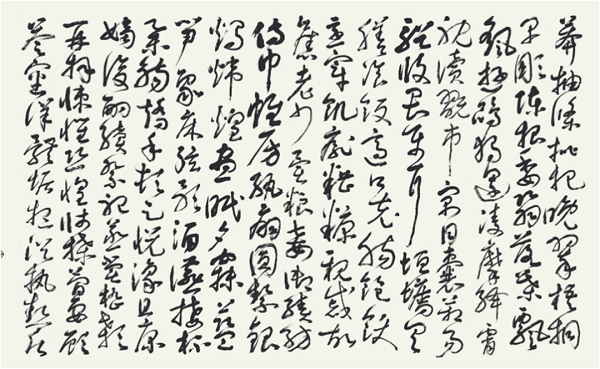 莽抽條枇杷晚翠梧桐
早凋陳根委翳落葉飄
颻遊鵾獨運凌摩絳霄
耽讀翫市寓目囊箱易
輶攸畏屬耳垣墻具
膳飡飯適口充腸飽飫
烹宰飢厭糟糠親戚故
舊老少異糧妾御績紡
侍巾帷房紈扇圓潔銀
燭煒煌晝眠夕寐藍
筍象床弦歌酒讌接杯
舉觴矯手頓足悅豫且康
嫡後嗣續祭祀蒸嘗稽顙
再拜悚懼恐惶牋牒簡要顧
答審詳骸垢想浴執熱願